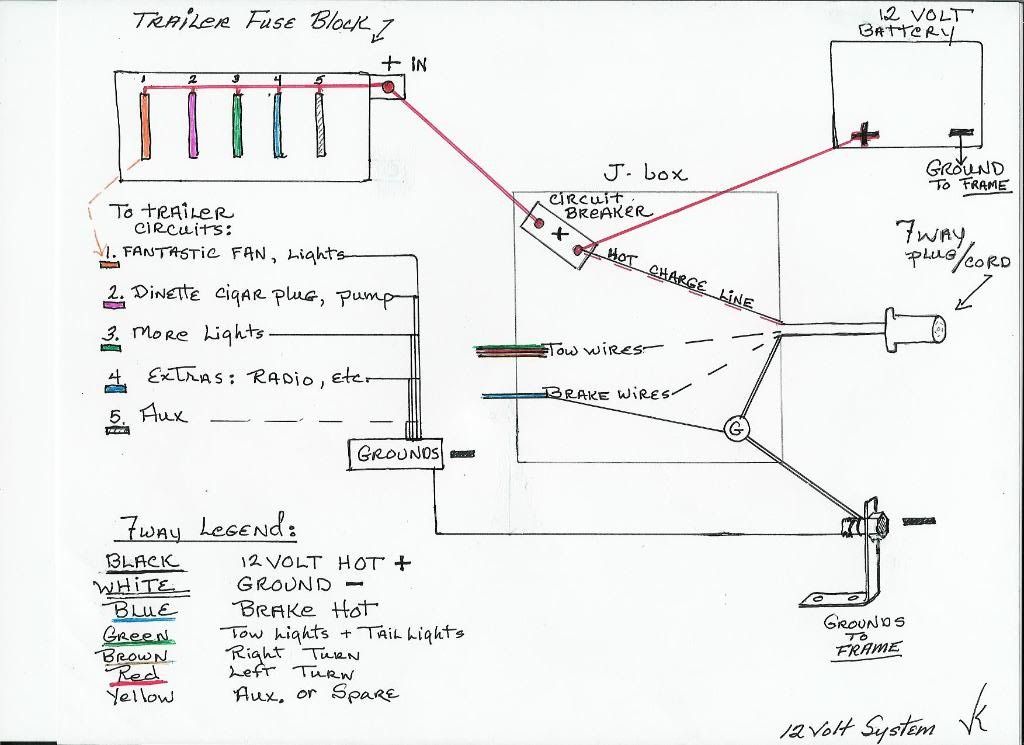 TRAILER FUSE BLOCK
12 VOLT
BATTERY
+ IN
1 2 3 4 5
+ −
GROUND
TO FRAME
J-box
CIRCUIT
BREAKER
+
HOT CHARGE LINE
7WAY
PLUG/CORD
To TRAILER
CIRCUITS:
1. FANTASTIC FAN, Lights
2. DINETTE CIGAR PLUG, PUMP
3. MORE Lights
4 EXTRAS: RADIO, ETC.
5. AUX
TOW WIRES
BRAKE WIRES
G
GROUNDS −
7WAY LEGEND:
BLACK 12 VOLT HOT +
WHITE GROUND −
BLUE BRAKE HOT
Green Tow Lights + Tail Lights
BROWN Right TURN
Red Left TURN
Yellow Aux. or Spare
−
GROUNDS
TO
FRAME
12 Volt System JK